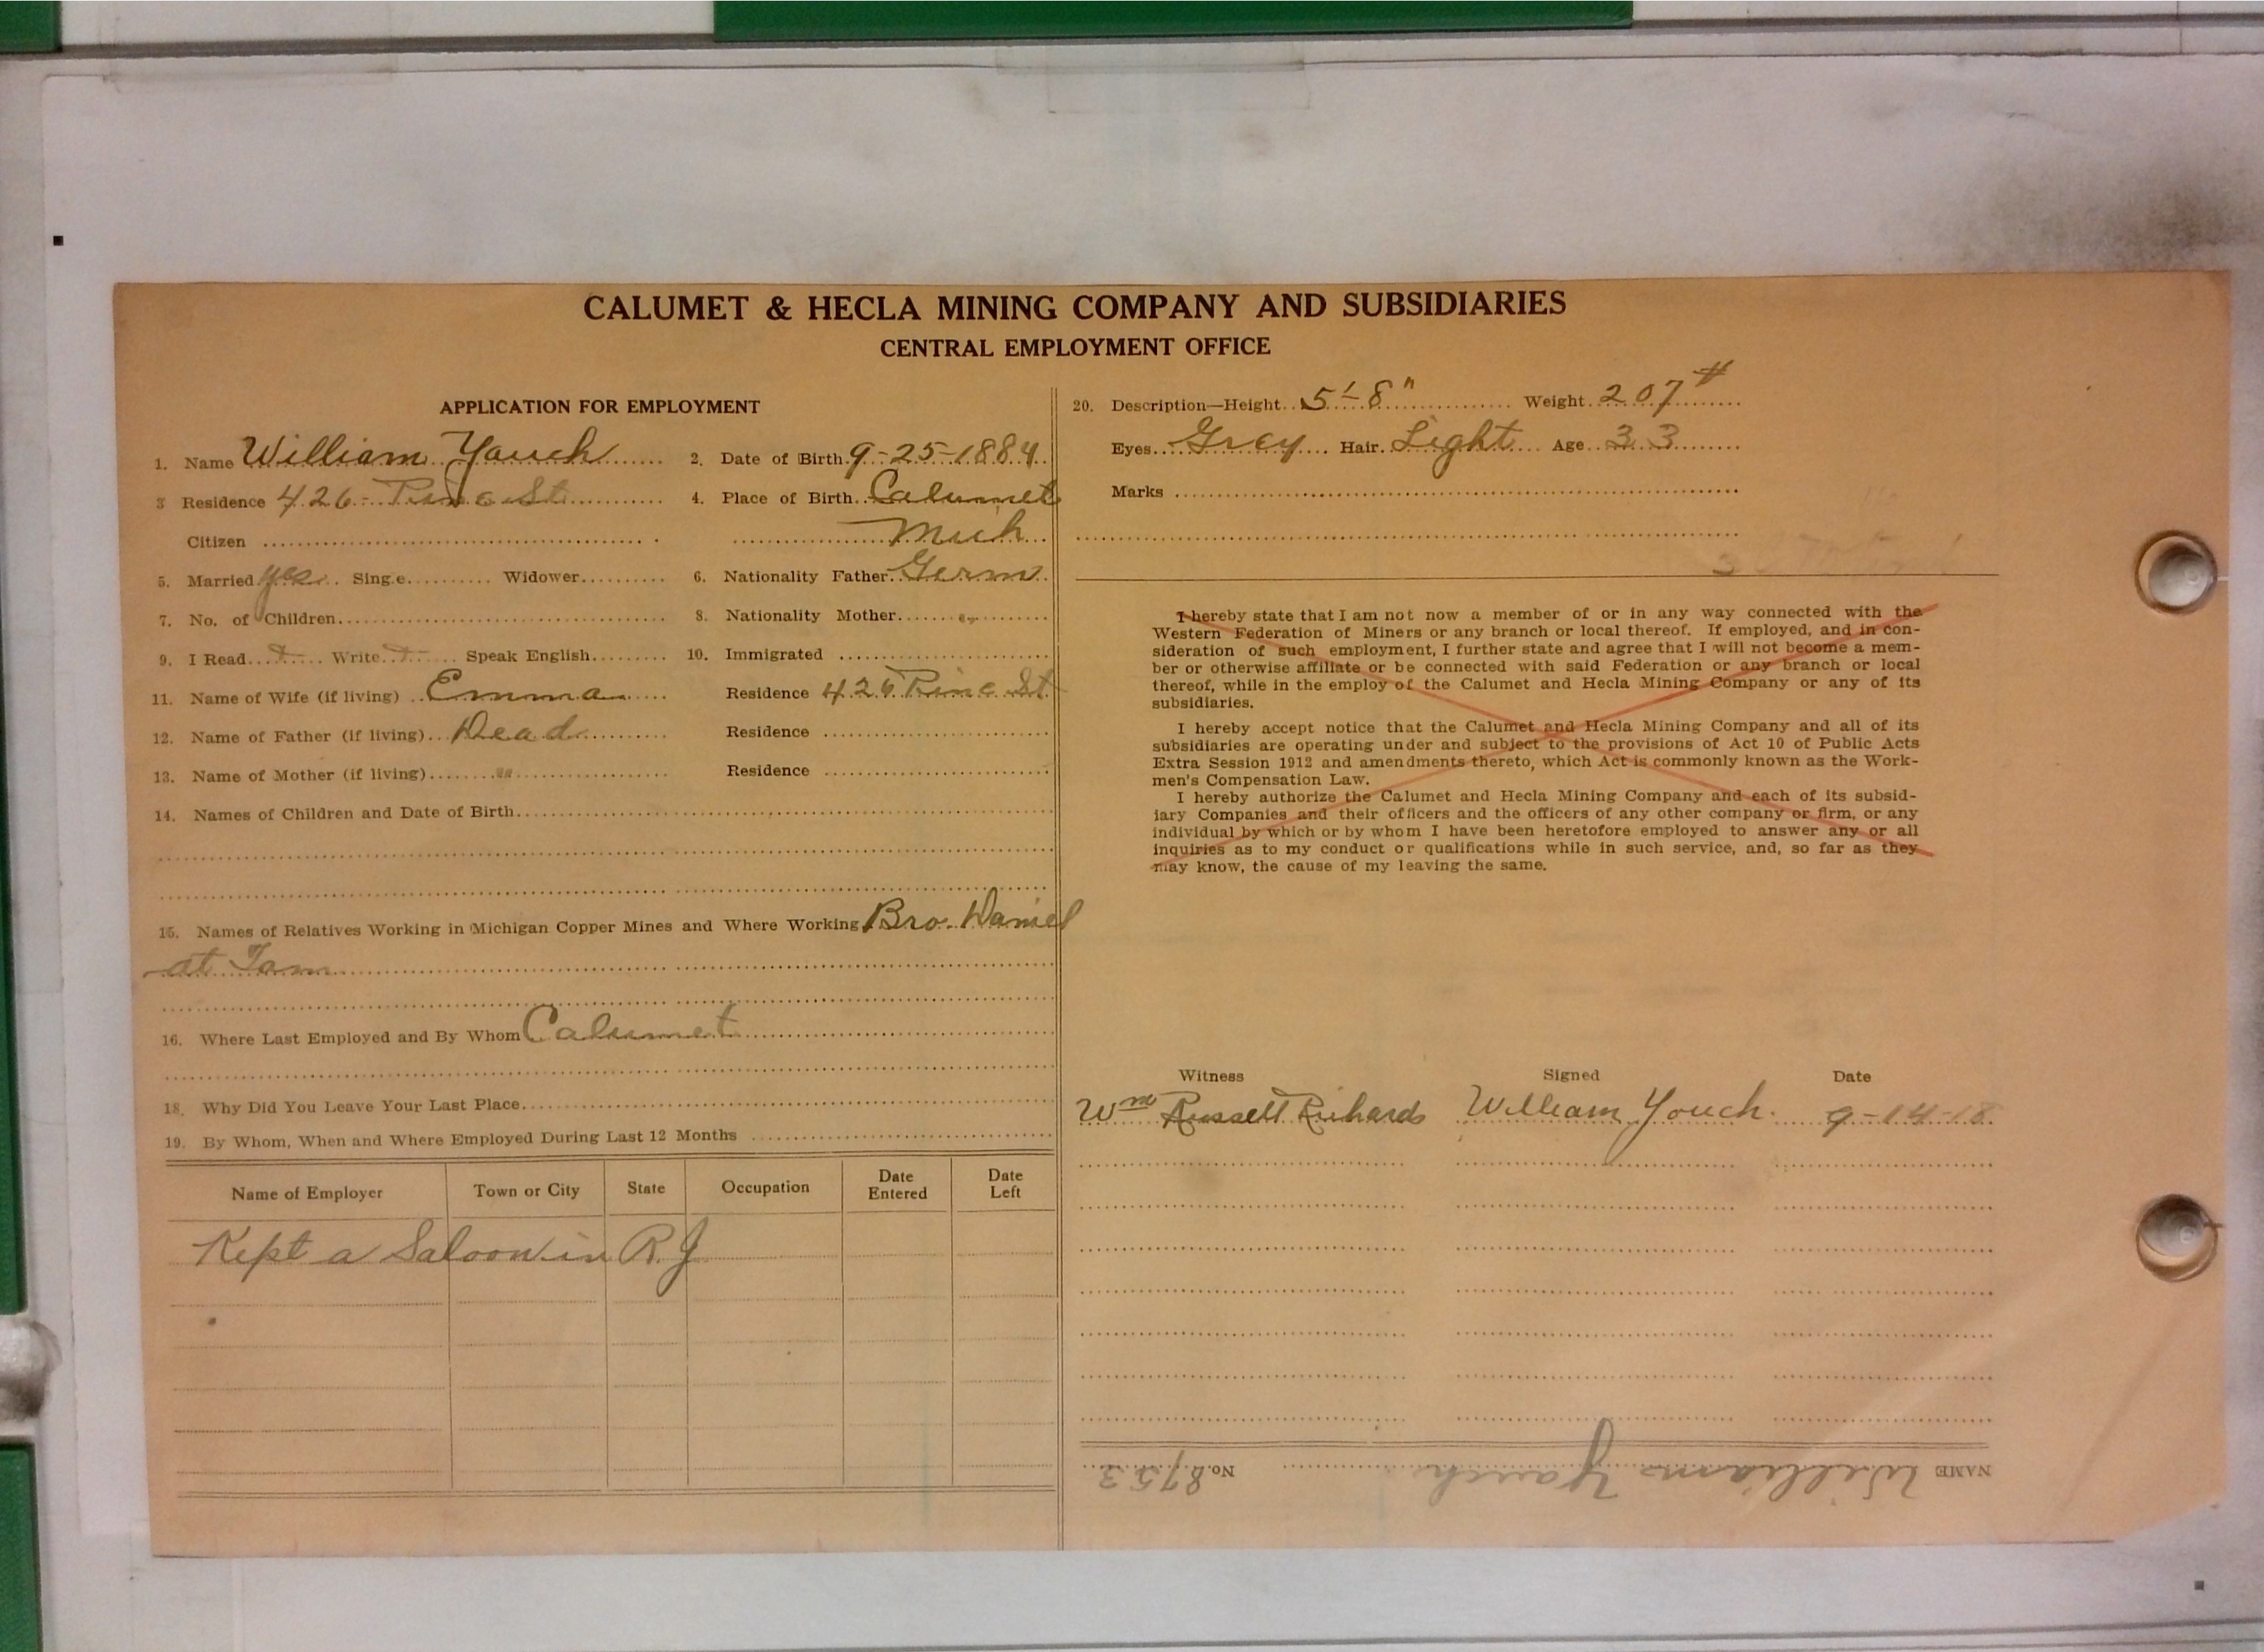 CALUMET & HECLA MINING COMPANY AND SUBSIDIARIES
CENTRAL EMPLOYMENT OFFICE
APPLICATION FOR EMPLOYMENT
1. Name William Yauch 2. Date of Birth 9-25-1884
3 Residence 426- Pine St 4. Place of Birth Calumet
Citizen Mich
5. Married yes Sing.e Widower 6. Nationality Father Germ
7. No. of Children 8. Nationality Mother "
9. I Read + Write + Speak English 10. Immigrated
11. Name of Wife (if living) Emma Residence 426 Pine St
12. Name of Father (if living) Dead Residence
13. Name of Mother (if living) " Residence
14. Names of Children and Date of Birth
15. Names of Relatives Working in Michigan Copper Mines and Where Working Bro. Daniel
at Tam
16. Where Last Employed and By Whom Calumet
18. Why Did You Leave Your Last Place
19. By Whom, When and Where Employed During Last 12 Months
Name of Employer Town or City State Occupation Date Entered Date Left
Kept a Saloon in R. J
20. Description—Height 5'-8" Weight 207#
Eyes Grey Hair Light Age 33
Marks
I hereby state that I am not now a member of or in any way connected with the
Western Federation of Miners or any branch or local thereof. If employed, and in con-
sideration of such employment, I further state and agree that I will not become a mem-
ber or otherwise affiliate or be connected with said Federation or any branch or local
thereof, while in the employ of the Calumet and Hecla Mining Company or any of its
subsidiaries.
I hereby accept notice that the Calumet and Hecla Mining Company and all of its
subsidiaries are operating under and subject to the provisions of Act 10 of Public Acts
Extra Session 1912 and amendments thereto, which Act is commonly known as the Work-
men's Compensation Law.
I hereby authorize the Calumet and Hecla Mining Company and each of its subsid-
iary Companies and their officers and the officers of any other company or firm, or any
individual by which or by whom I have been heretofore employed to answer any or all
inquiries as to my conduct or qualifications while in such service, and, so far as they
may know, the cause of my leaving the same.
Witness Signed Date
Wm Russell Richards William Youch. 9-14-18
NAME William Yauch No. 8753